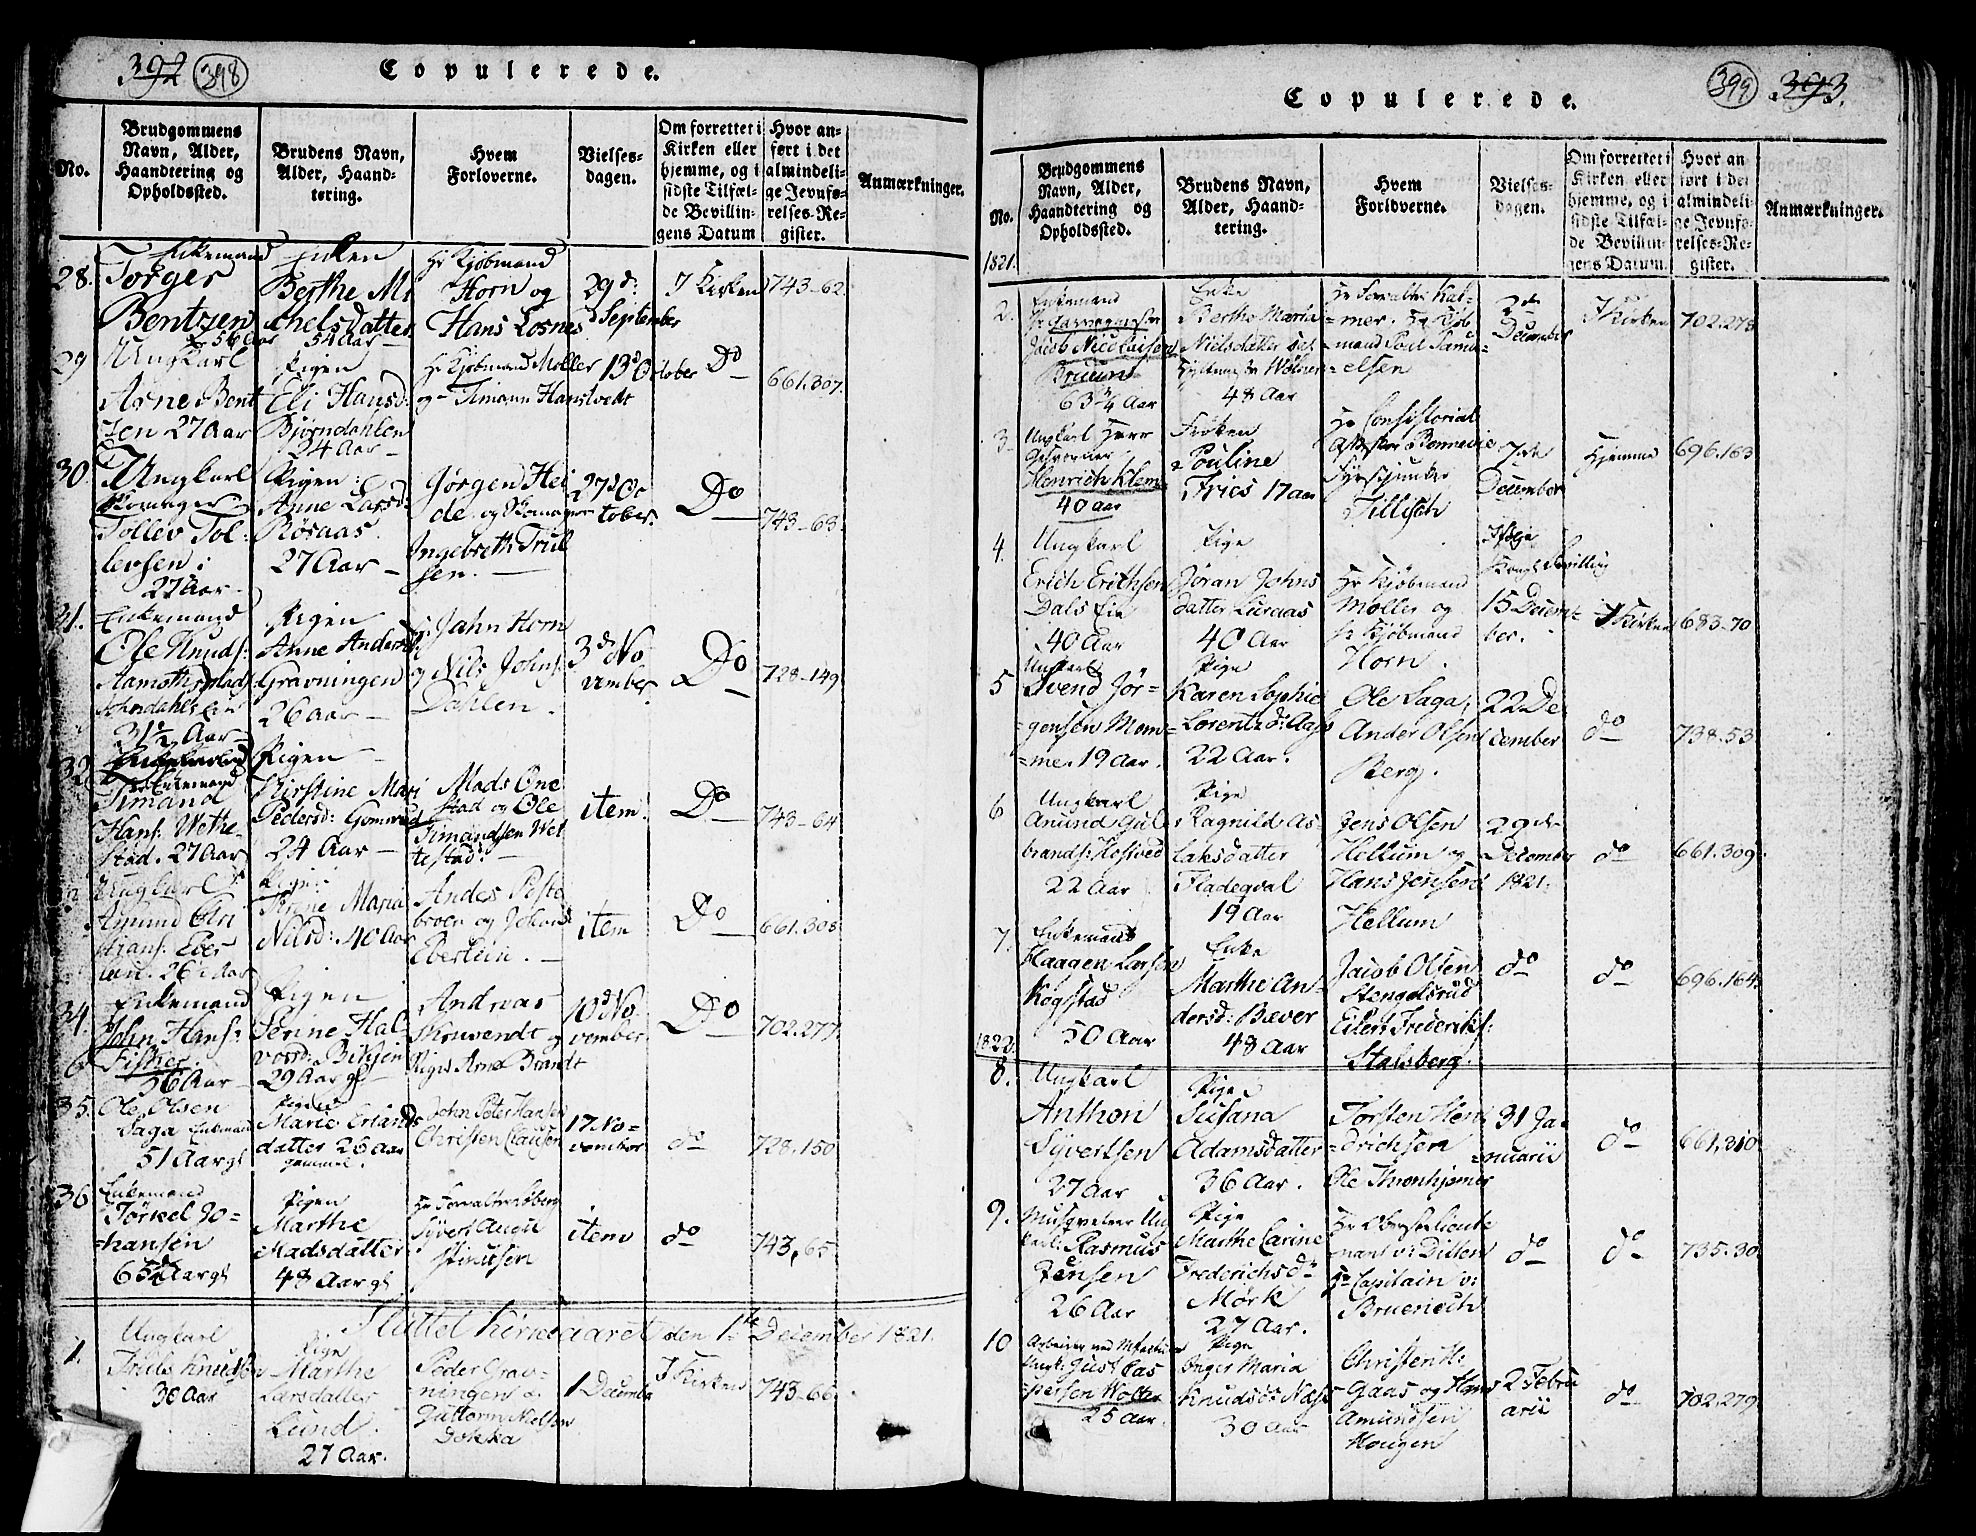 392 398
Copulerede.
No.
Brudgommens
Navn, Alder,
Haandtering og
Opholdssted.
Brudens Navn,
Alder, Haand-
tering.
Hvem
Forloverne.
Vielses-
dagen.
Om forrettet i
Kirken eller
hjemme, og i
sidste Tilfæl-
de Bevillin-
gens Datum
Hvor an-
ført i det
almindeli-
ge Jevnfø-
relses-Re-
gister.
Anmærkninger.
28.
Enkemand
Torger
Bentzen
56 Aar
Enken
Berthe Mi
chelsdatter
54 Aar
Hr Kjøbmand
Horn og
Hans Losnes
29d:
September
I Kirken
743-62.
29
Ungkarl
Arne Bent
sen 27 Aar
Pigen
Eli Hansd:
Bjørndahlen
24 Aar
Hr Kjøbmand Møller
og Timann Hanstvedt
13d October
Do
661.307.
30.
Ungkarl
Tollev Tol-
levsen i
27 Aar
Pigen
Anne Larsd:
Røsaas
27 Aar
Jørgen Hei
de og Skomager
Ingebreth Trul
sen.
27d Oc
tober.
Do
743-63.
Enkemand
Ole Knuds:
31½ Aar
Pigen
Anne Andersd:
Gravningen
26 Aar
Hr. Jahn Horn
og Nils Johns:
Dahlen.
3d No
vember
Do
728-149
32
Enkemand
Timand
Hans: Wethe-
stad. 27 Aar
Pigen
Kirstine Mari
Pedersd: Gomsrud
24 Aar
Mads One
stad og Ole
Timandsen Wet
testad:
item.
Do
743-64
Ungkarl
Amund
26½ Aar
Pigen
Maria
Nilsd: 40 Aar
Andes Peste
broen og Johan
Eberlein.
item
Do
661.308
34.
Enkemand
John Hans:
Fisker
56 Aar
Pigen
Sørine Hal-
vorsd:
29 Aar gl
Andreas
og
Arne Brandt
10d No
vember
Do
702.277.
35.
Ole Olsen
Saga Enkemand
51 Aar gl
Pigen
Marie Erlands
datter 26 Aar
gammel.
John Peter Hansen
Christen Clausen
17 No-
vember
do
728.150
36
Enkemand
Törkel Jo-
hansen
65 Aar gl
Pigen
Marthe
Madsdatter
48 Aar gl
Hr Forvalter
Syvert
item
do
743,65
Sluttet kirkeaaret den 1ste December 1821.
1.
Ungkarl
Truls Knudsen
30 Aar
Pige
Marthe
Larsdatter
Lund.
27 Aar.
Peder Grav-
ningen og
Guttorm Nielsen
Dokka
1 Decembr
I Kirken
743-66
399 393.
Copulerede.
No.
1821.
Brudgommens
Navn, Alder,
Haandtering og
Opholdssted.
Brudens Navn,
Alder, Haand-
tering.
Hvem
Forloverne.
Vielses-
dagen.
Om forrettet i
Kirken eller
hjemme, og i
sidste Tilfæl-
de Bevillin-
gens Datum.
Hvor an
ført i det
almindeli-
ge Jevnfø-
relses-Re-
gister.
Anmærkninger.
2.
Enkemand
Jacob Nicolaisen
Bruun
63¾ Aar
Enke
Berthe Maria
Nielsdatter
48 Aar
Hr Forvalter Kal-
mer. Hr Kjøb
mand Poul Samu-
elsen
3de
December
I Kirken
702.278
3.
Ungkarl Herr
Henrich Klem
40 aar
Frøken
Pouline
Fries 17 aar
Hr Consistorial
Tillisch
7de
December
Hjemme
696.163
4.
Ungkarl
Erich Erichsen
Dals Eie
40 Aar
Pige
Jøran Johns
datter Luraas
40 Aar
Hr Kjøbmand
Møller og
Hr Kjøbmand
Horn.
Ifølge
Kongl. Bevilling
15 Decem-
ber.
I Kirken
683-70
5
Ungkarl
Svend Jør-
gensen Mom-
me. 19 Aar.
Pige
Karen Sophie
Lorentzd: Aas
22 Aar.
Ole Saga,
Ander Olsen
Berg.
22 De
cember
do
738.53
6
Ungkarl
Anund Gul-
brands:
22 Aar
Pige
Ragnild As-
laksdatter
Fladeqval
19 Aar
Jens Olsen
Hellum og
Hans Jensen
Hellum
29de
December
1821.
do
661.309.
7.
Enkemand
Haagen Larsen
Kogstad
50 Aar
Enke
Marthe An-
dersd: Bæver
48 Aar
Jacob Olsen
Stengelsrud
Eilert Frederiks:
Stalsberg.
do
do
696.164.
1822.
8.
Ungkarl
Anthon
Syvertsen
27 Aar
Pige
Susana
Adamsdatter
36 Aar.
Torsten Hen
drichsen
Ole Thronhjemer
31 Ja-
nuarii
do
661,310
9.
Musqveteer Ung
karl: Rasmus
Jensen
26 Aar
Pige
Marthe Carine
Frederichsdr
Mørk
27 Aar.
Hr Oberstlieute
nant v: Ditten
Hr Capitain v:
do
do
735.30
10
Just Cas
persen Wolter
25 aar.
Pige
Inger Maria
Knudsd: Næss
30 aar
Christen H:
Gaas og Hans
Amundsen
Hougen
2 Febru
arii
do
702,279